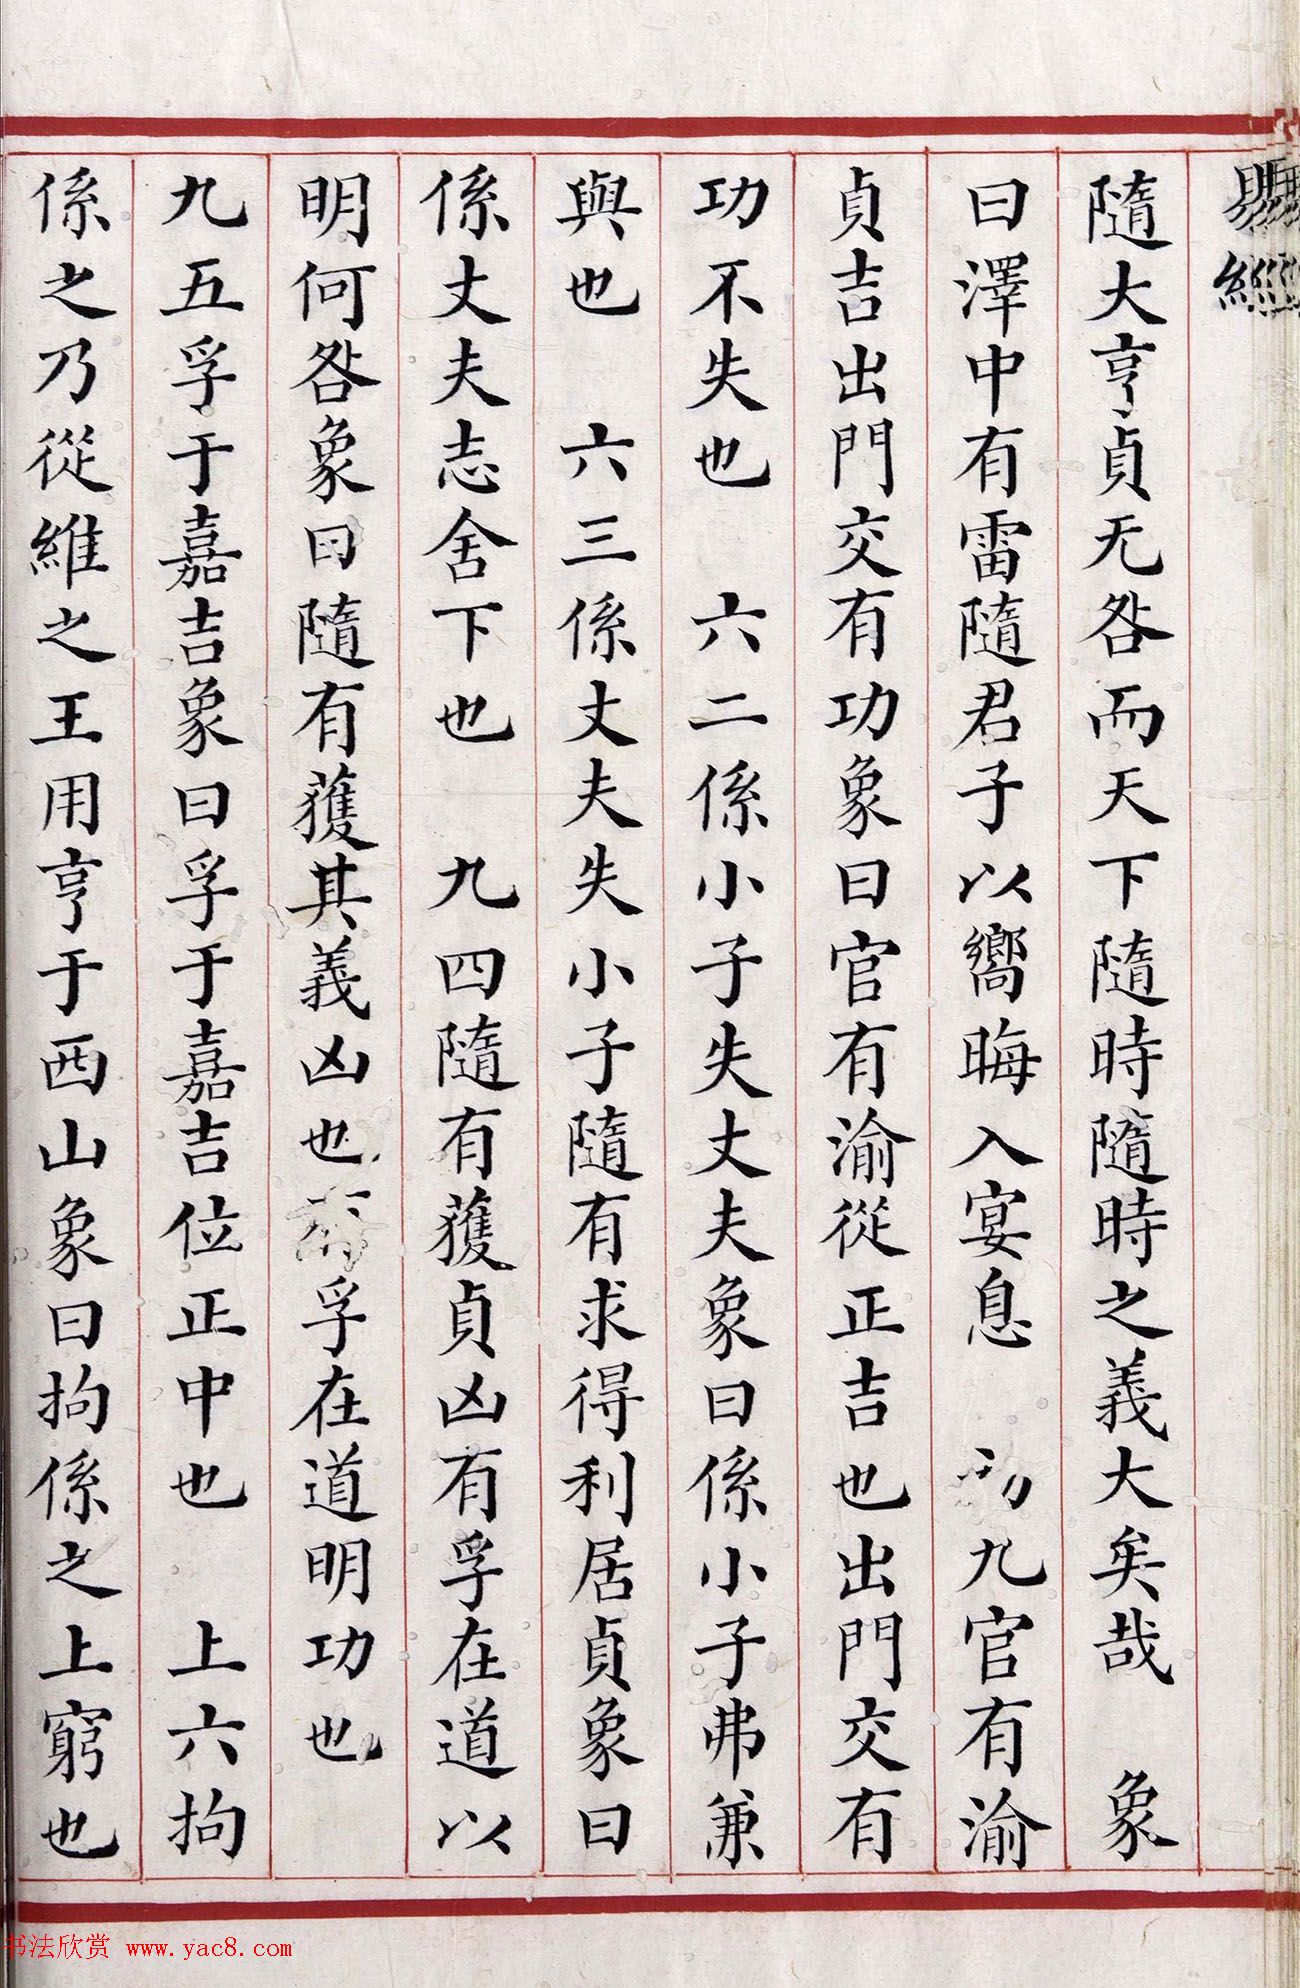 易經
隨大亨貞无咎而天下隨時隨時之義大矣哉　象
曰澤中有雷隨君子以嚮晦入宴息　初九官有渝
貞吉出門交有功象曰官有渝從正吉也出門交有
功不失也　六二係小子失丈夫象曰係小子弗兼
與也　六三係丈夫失小子隨有求得利居貞象曰
係丈夫志舍下也　九四隨有獲貞凶有孚在道以
明何咎象曰隨有獲其義凶也有孚在道明功也
九五孚于嘉吉象曰孚于嘉吉位正中也　上六拘
係之乃從維之王用亨于西山象曰拘係之上窮也
书法欣赏 www.yac8.com